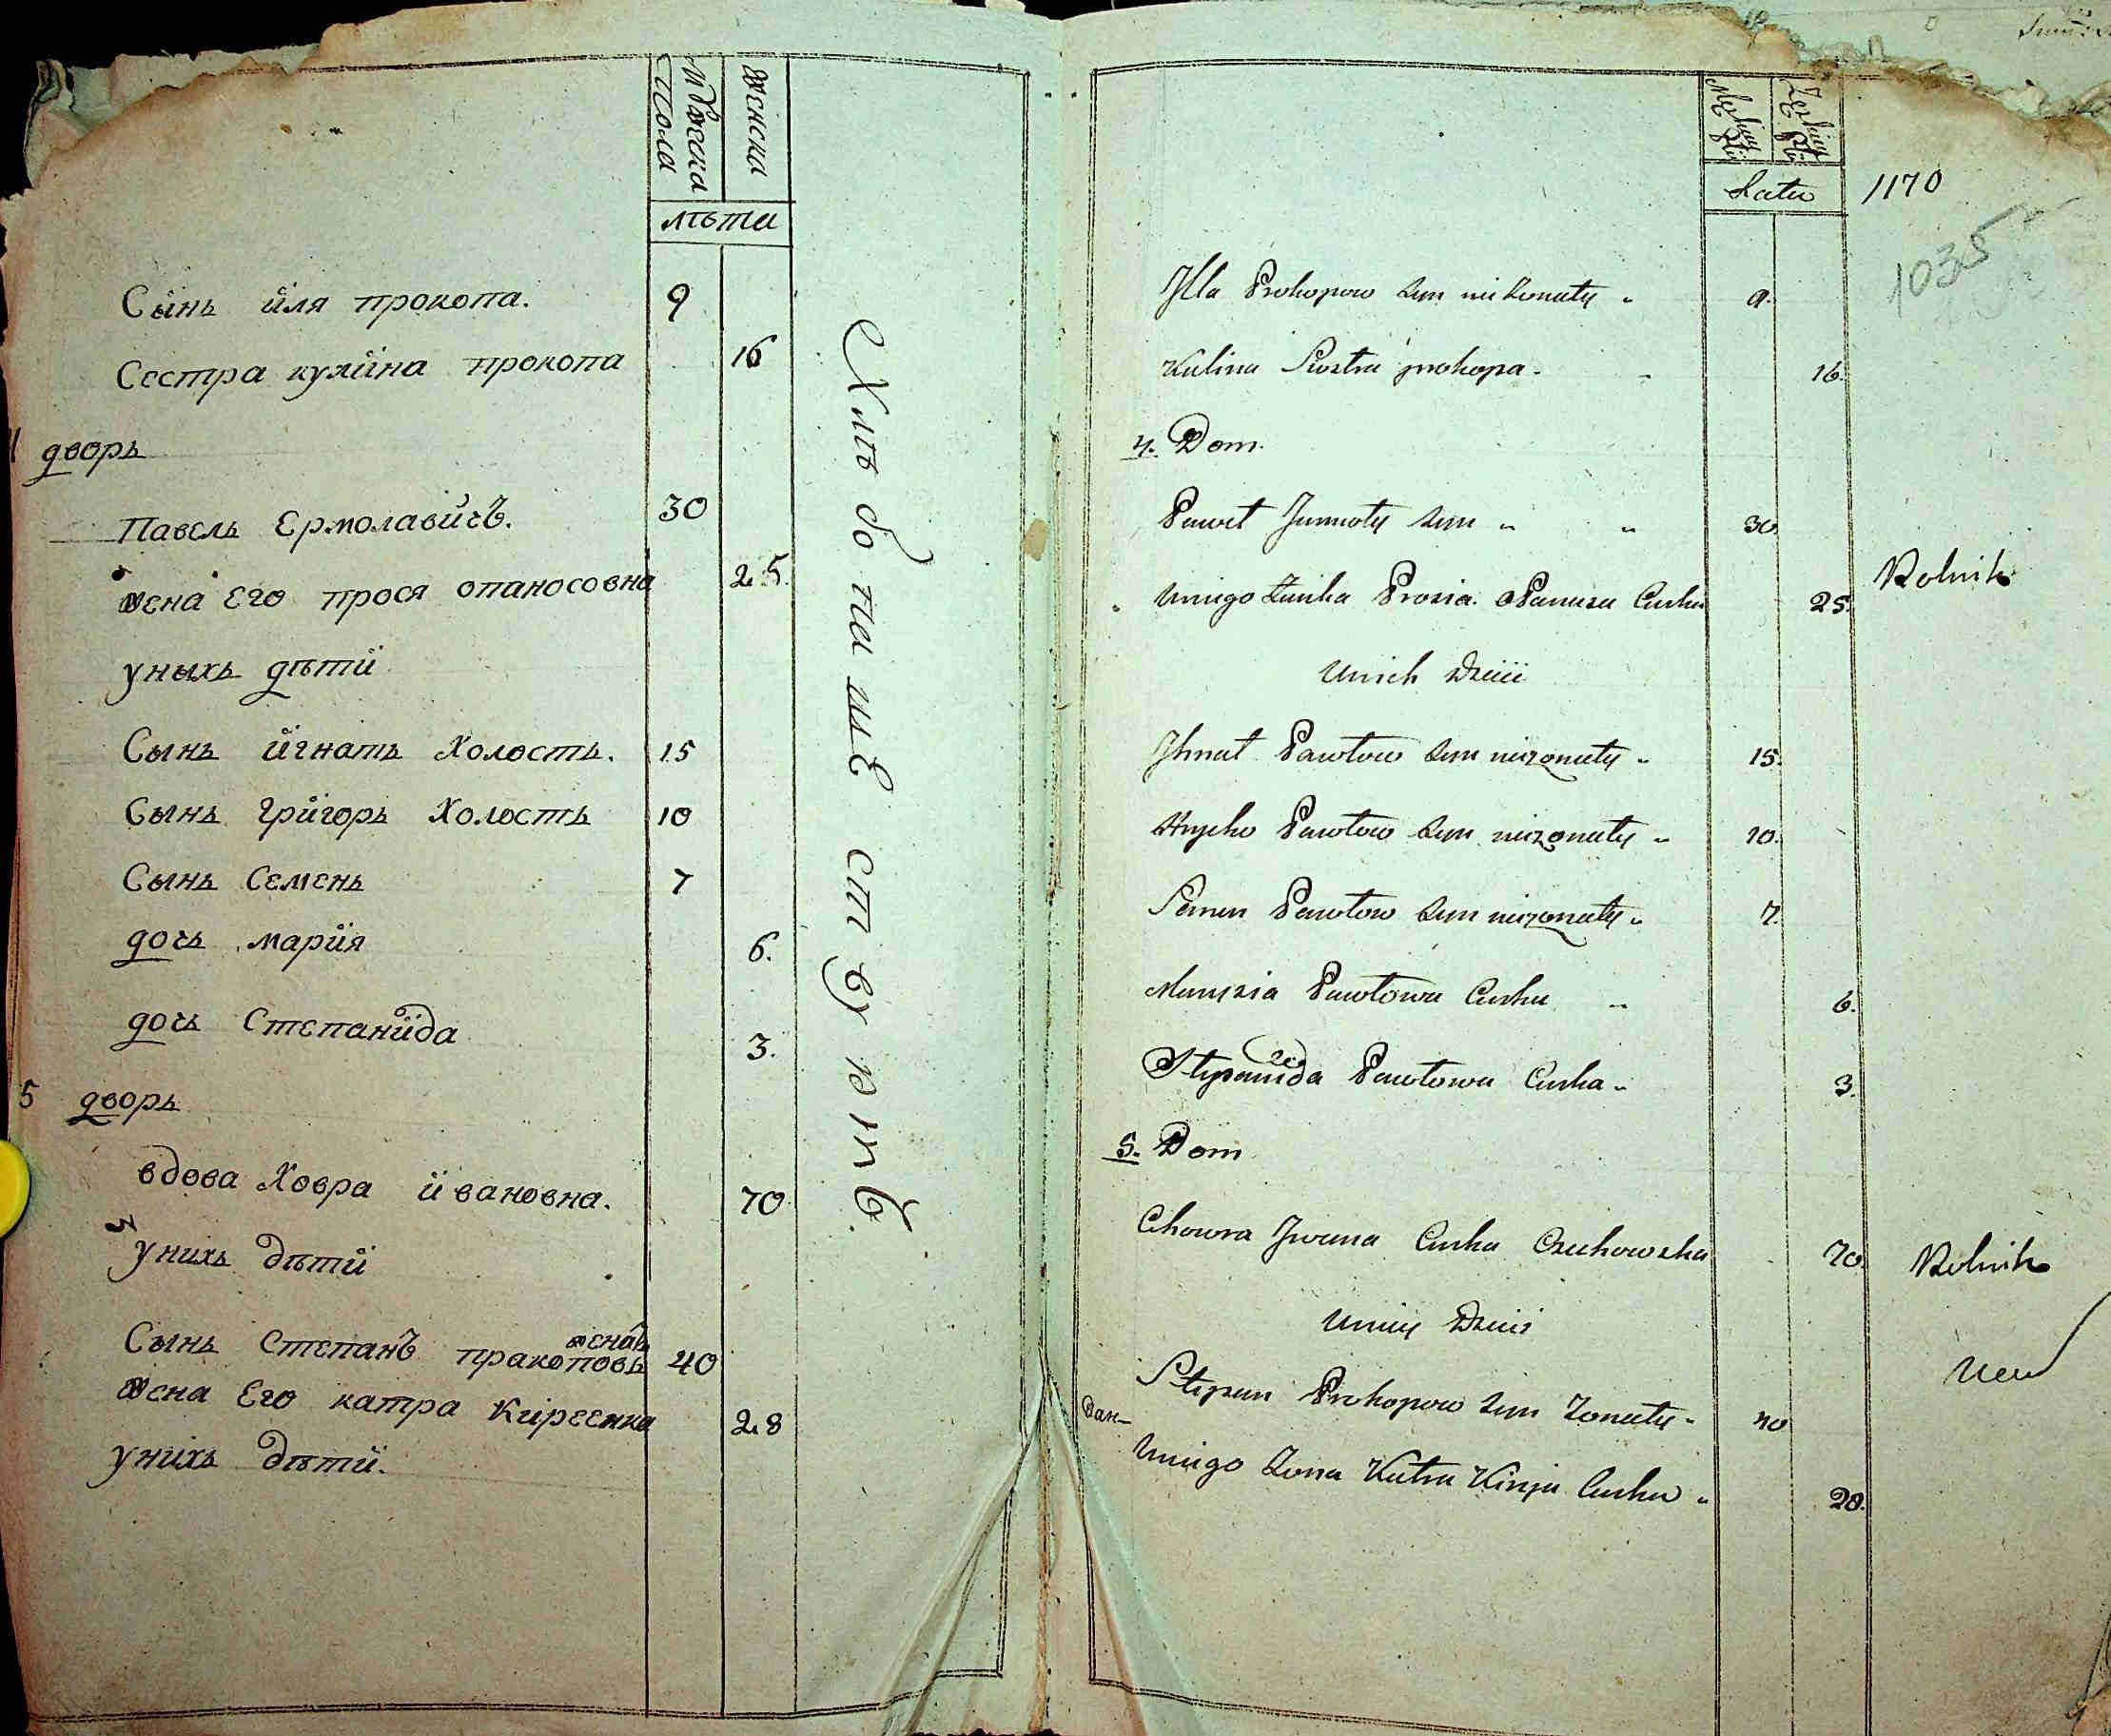 мужеска
пола
женска
лѣта
Сынь иля прокопа. 9
Сестра кулина прокопа 16
дворь
Павель Ермолавичъ. 30
жена Его прося опаносовна 25.
уныхь дѣти
Сынь игнать Холость. 15
Сынь григорь Холость 10
Сынь Семень 7
дочь мария 6.
дочь Степанида 3.
5 дворь
вдова Ховра ивановна. 70
унихь дѣти
женатъ
Сынь Степанъ пракоповь 40
жена Его катра Киреенка 28
унихь дѣти.
Хлѣбопашествуютъ.
Męzkiey Płci
Zezkiey Płci
Latu
1170
1035
Illa Prokopow syn nie zonaty 9.
Kulina Siostra prokopa 16.
4. Dom.
Paweł Jarmoły syn 30
Uniego Zonka Prosia OPanasa Curka 25. Rolnik
Unich Dzieci
Ihnat Pawłow syn niezonaty 15.
Hryćko Pawłow syn niezonaty 10.
Semen Pawłow syn niezonaty 7.
Marysia Pawłowa Curka 6.
Stypanida Pawłowa Curka 3.
5. Dom
Chowra Iwana Curka 70. Rolnik
Uniey Dzieci
Stypan Prokopow syn Zonaty 40
Uniego Zona Katra Kiryia Curka 28.